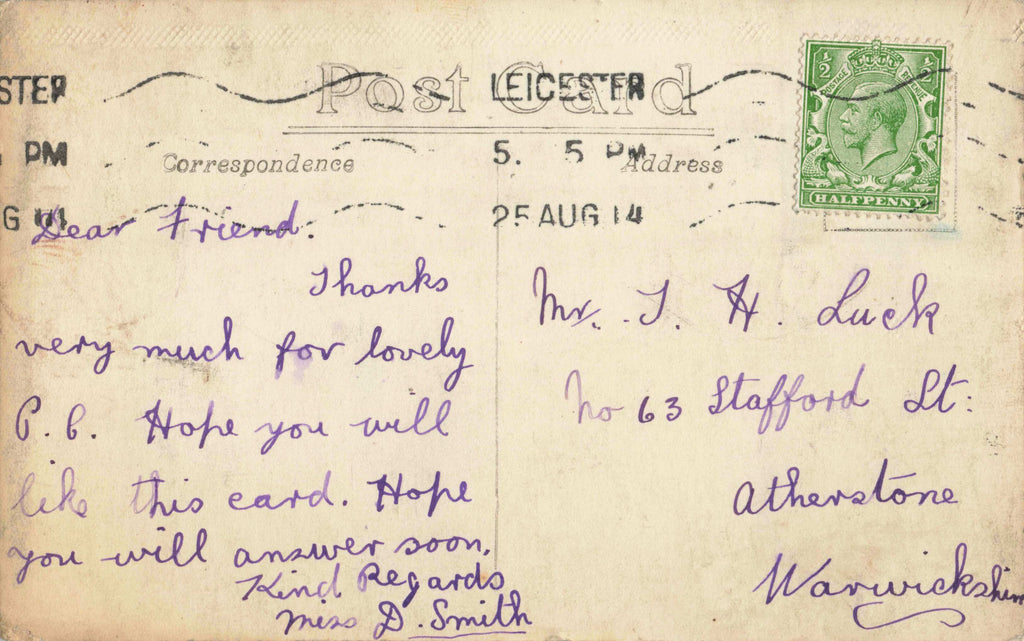 Post Card
STER
PM
G 14
LEICESTER
5. 5 PM
25 AUG 14
1/2 1/2
POSTAGE REVENUE
HALFPENNY
Correspondence
Address
Dear Friend.
Thanks
very much for lovely
P. C. Hope you will
like this card. Hope
you will answer soon.
Kind Regards
Miss D. Smith
Mr. J. H. Luck
No 63 Stafford St:
Atherstone
Warwickshire